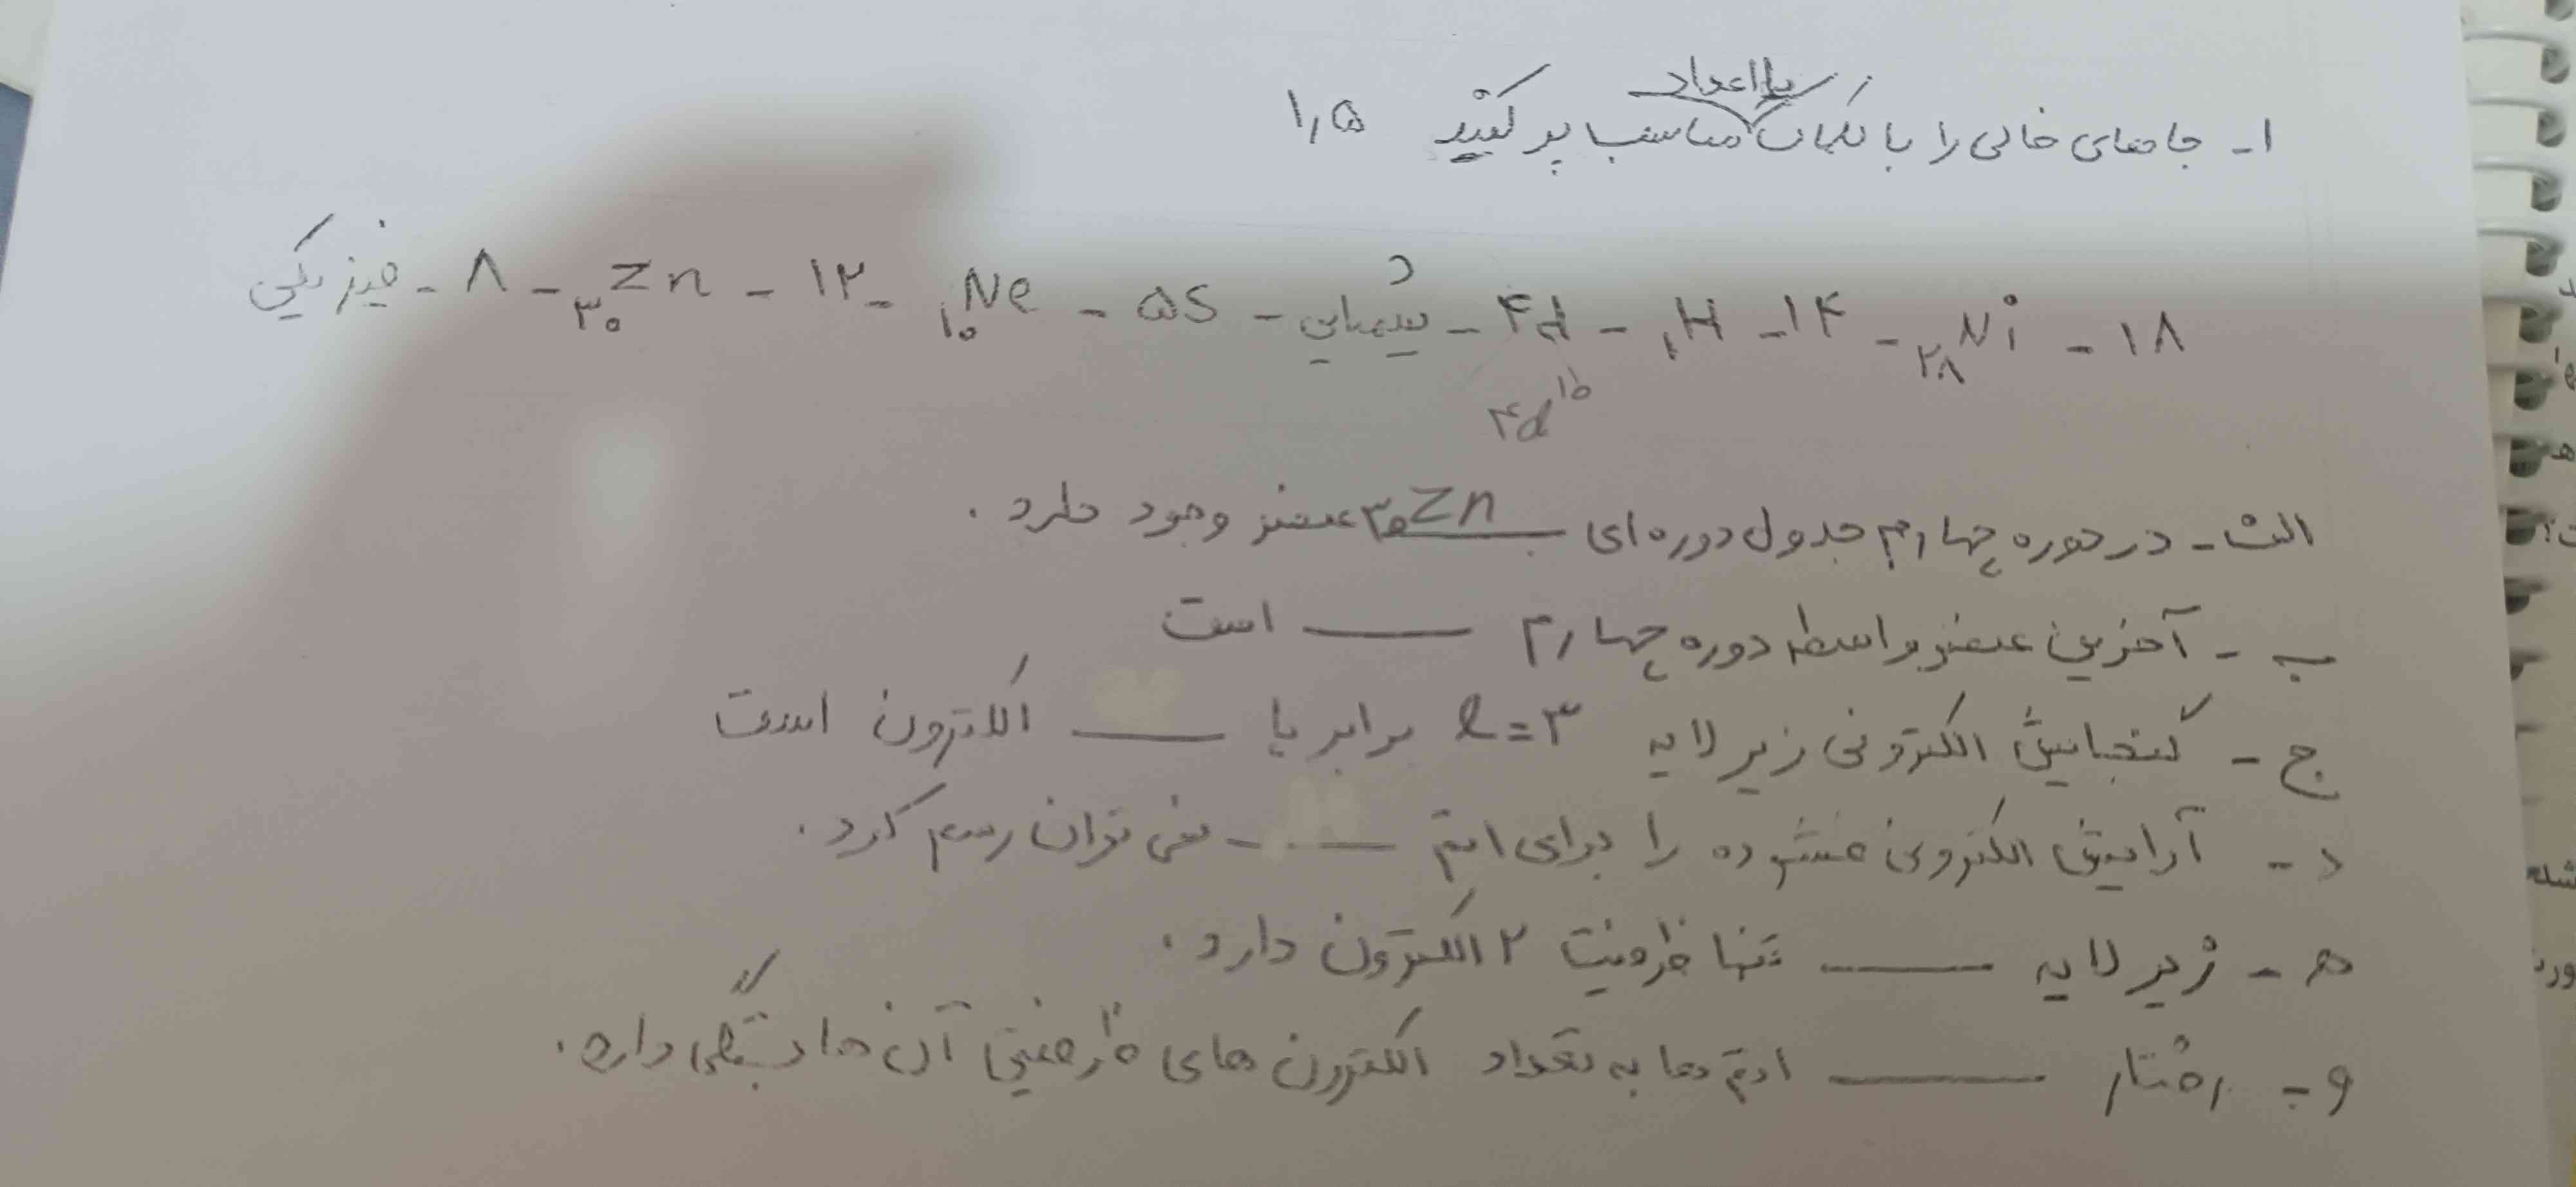 ۱- جاهای خالی را با کلمات یا اعداد مناسب پر کنید ۱,۵
۱۸ - ₂₈Ni - ۱۴ - ₁H - ۴d - شیمیایی - ۵s - ₁₀Ne - ۱۲ - ₃₀Zn - ۸ - فیزیکی
۴d¹⁰
الف - در دوره چهارم جدول دوره ای ₃₀Zn عنصر وجود دارد .
ب - آخرین عنصر واسطه دوره چهارم ــــــ است
ج - گنجایش الکترونی زیر لایه l=۳ برابر با ــــــ الکترون است
د - آرایش الکترونی فشرده را برای اتم ــــــ نمی توان رسم کرد .
ه - زیر لایه ــــــ تنها ظرفیت ۲ الکترون دارد .
و - رفتار ــــــ اتم ها به تعداد الکترون های ظرفیتی آن ها بستگی دارد .